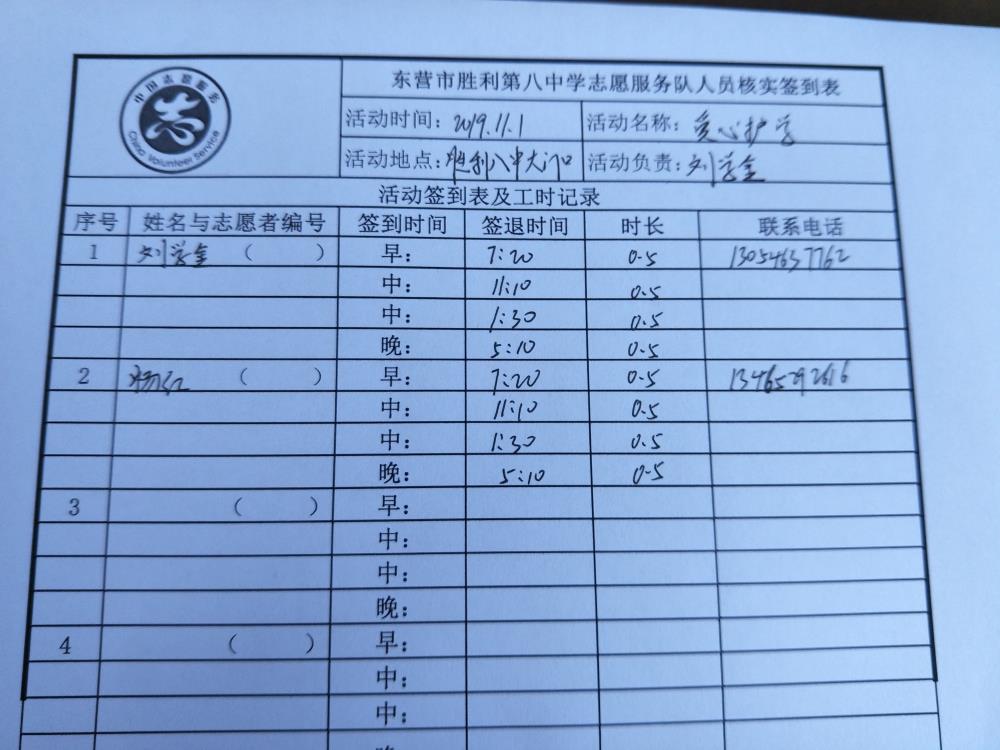 中国志愿服务
China Volunteer Service
东营市胜利第八中学志愿服务队人员核实签到表
活动时间：2019.11.1 活动名称：爱心护学
活动地点：胜利八中大门口 活动负责：刘学金
活动签到表及工时记录
序号 姓名与志愿者编号 签到时间 签退时间 时长 联系电话
1 刘学金 （ ） 早： 7:20 0.5 13054637762
中： 11:10 0.5
中： 1:30 0.5
晚： 5:10 0.5
2 杨红 （ ） 早： 7:20 0.5 13465292616
中： 11:10 0.5
中： 1:30 0.5
晚： 5:10 0.5
3 （ ） 早：
中：
中：
晚：
4 （ ） 早：
中：
中：